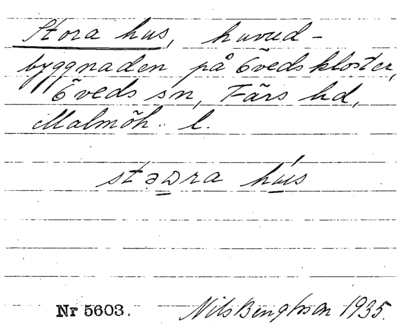 Stora hus, huvud-
byggnaden på Övedskloster,
Öveds sn, Färs hd,
Malmöh. l.
stəꭥra hús
Nr 5603. Nils Bengtsson 1935.